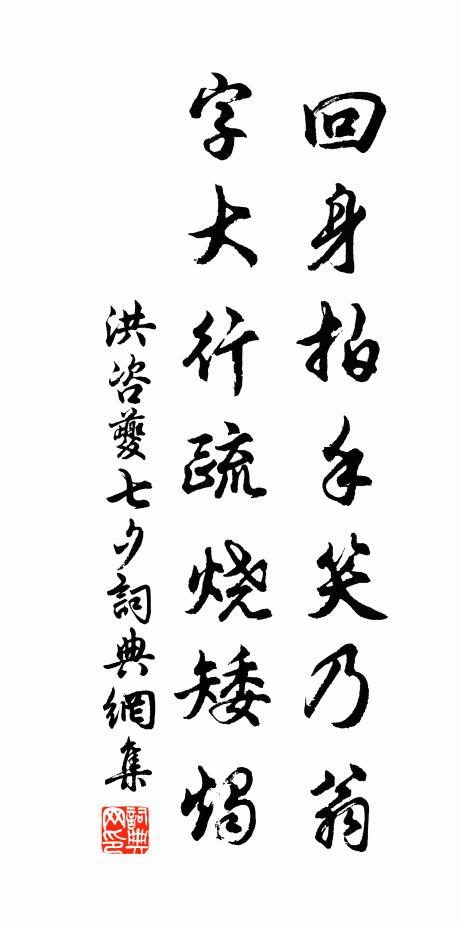 回身拍手笑乃翁
字大行疏烧矮烛
洪咨夔七夕詞典網集
詞典网印